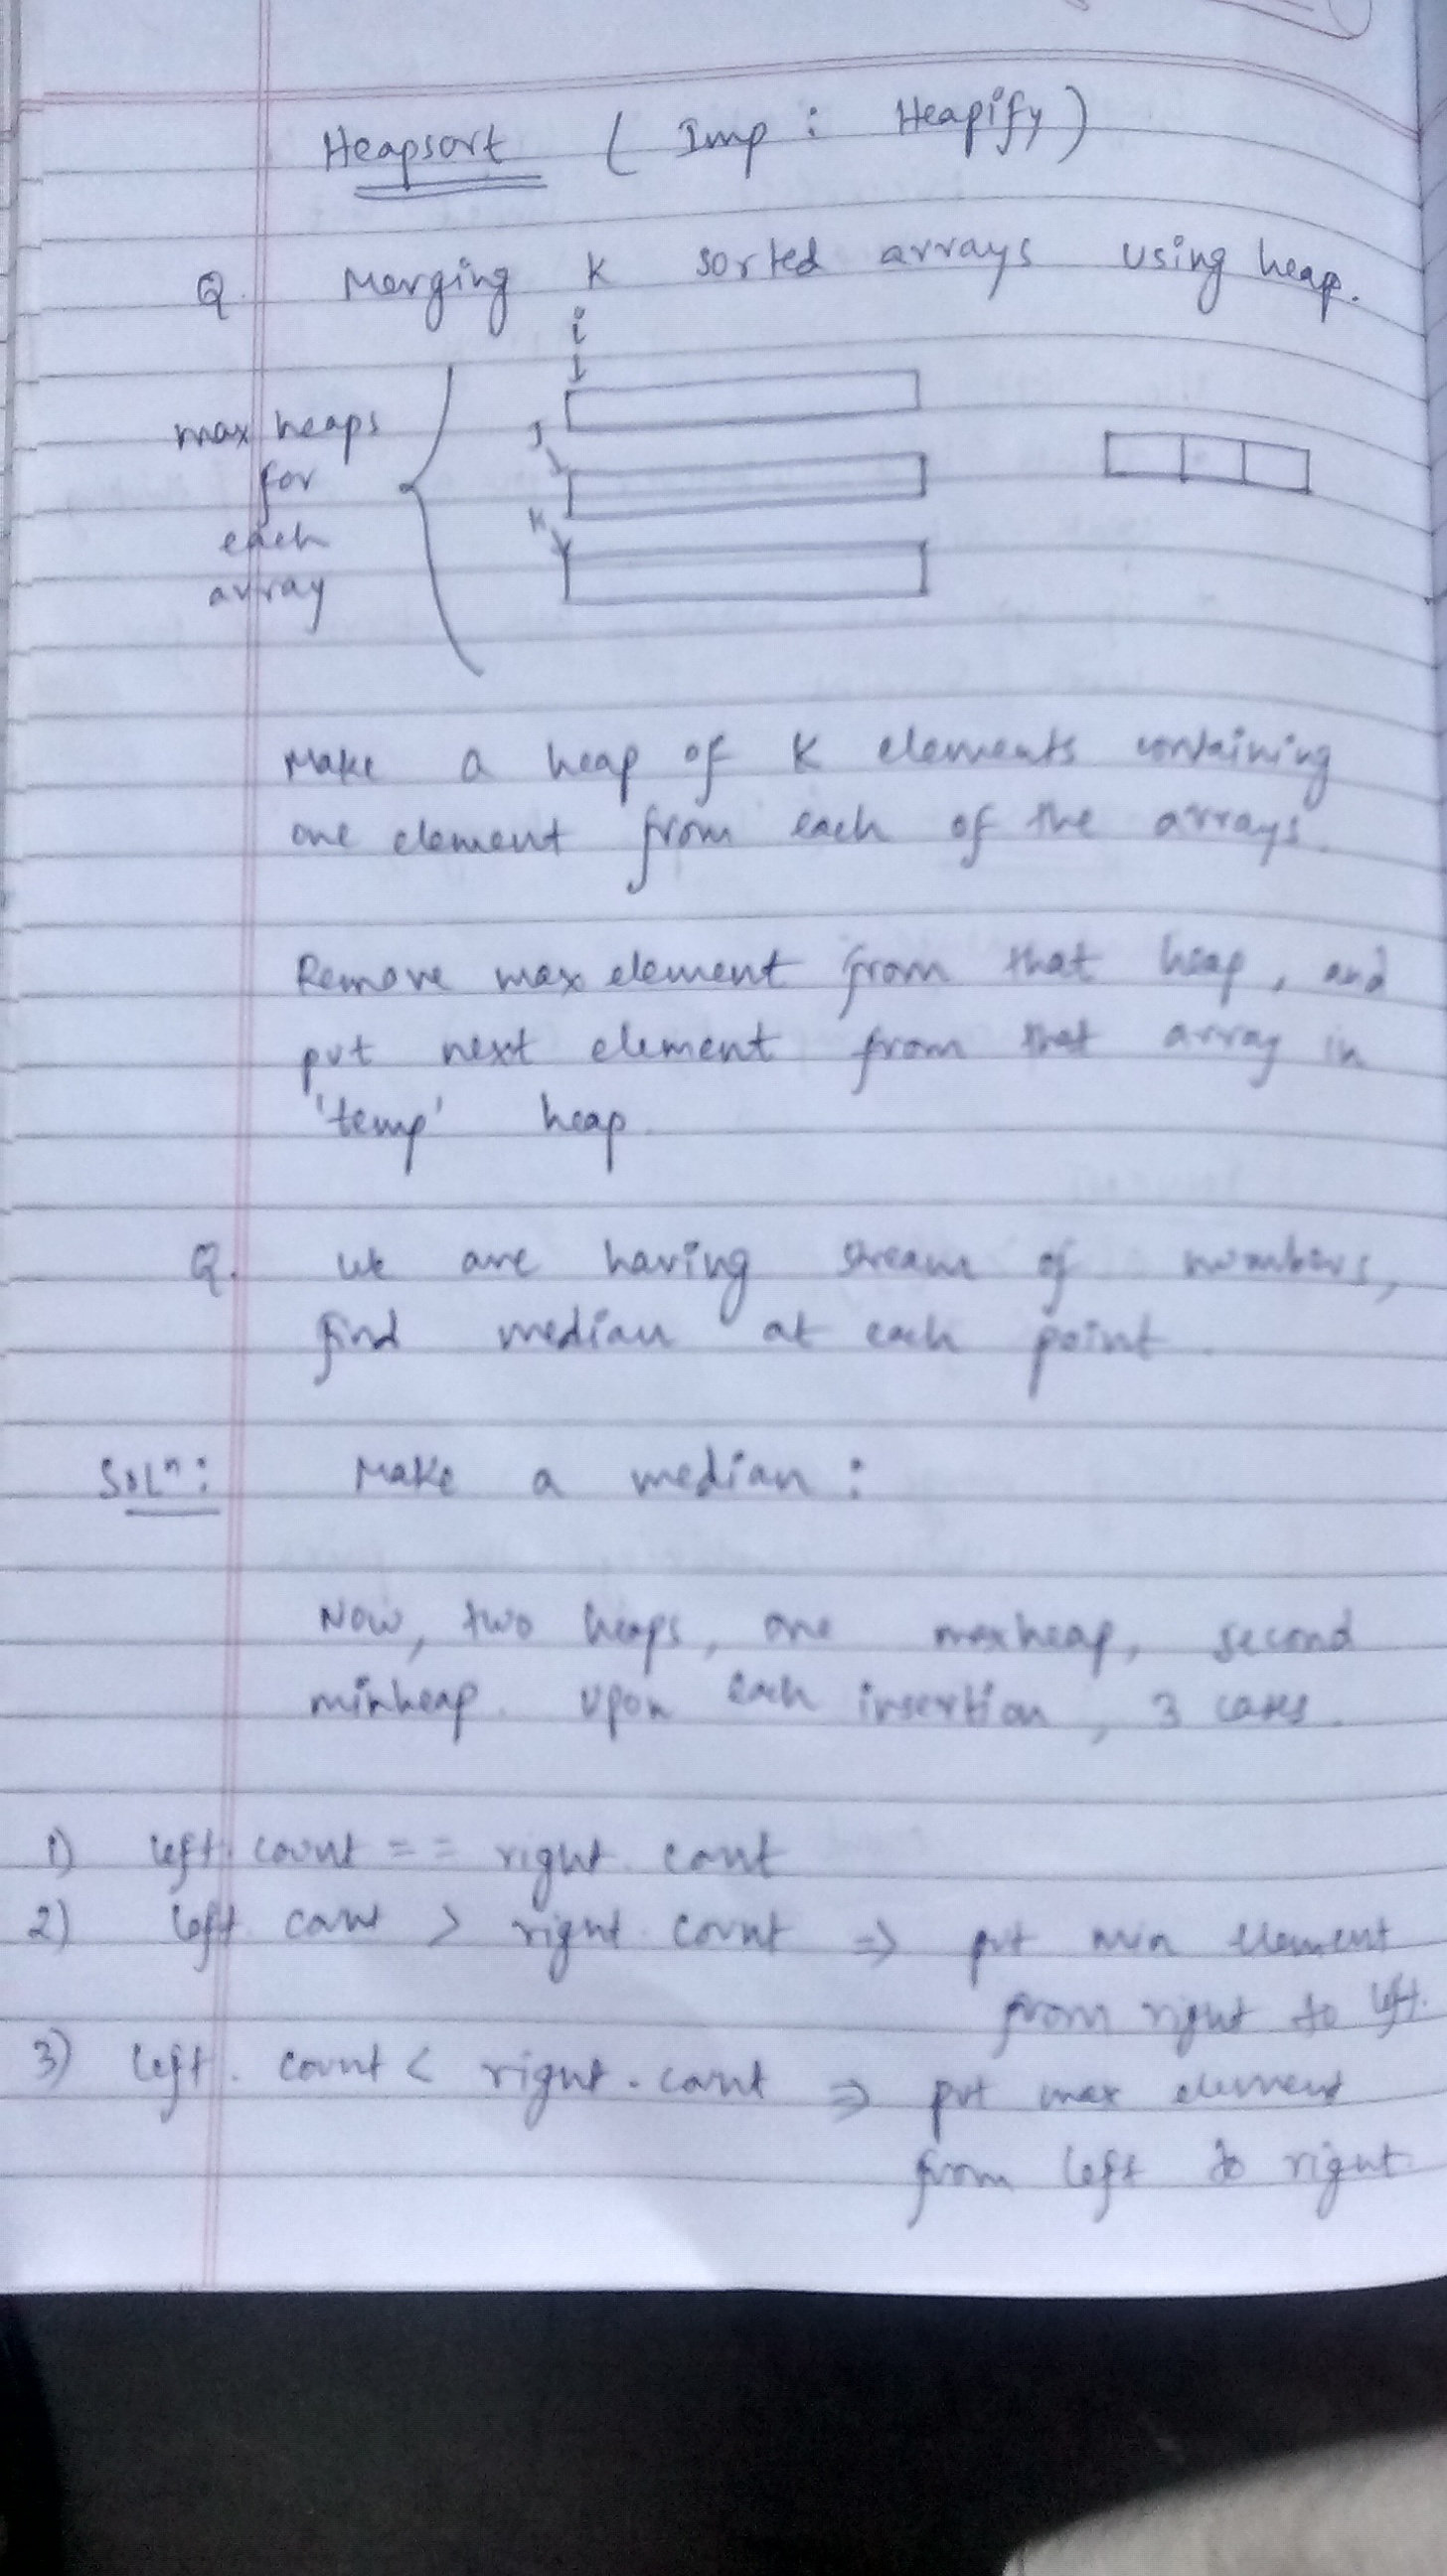 Heapsort ( Imp : Heapify )
Q. Merging K sorted arrays using heap.
i
max heaps
for
each
array
j
K
Make a heap of K elements containing
one element from each of the arrays.
Remove max element from that heap, and
put next element from that array in
'temp' heap.
Q. We are having stream of numbers,
find median at each point.
Solⁿ: Make a median :
Now, two heaps, one maxheap, second
minheap. Upon each insertion, 3 cases.
1) left. count == right. count
2) left. count > right. count => put min element
from right to left.
3) left. count < right. count => put max element
from left to right.